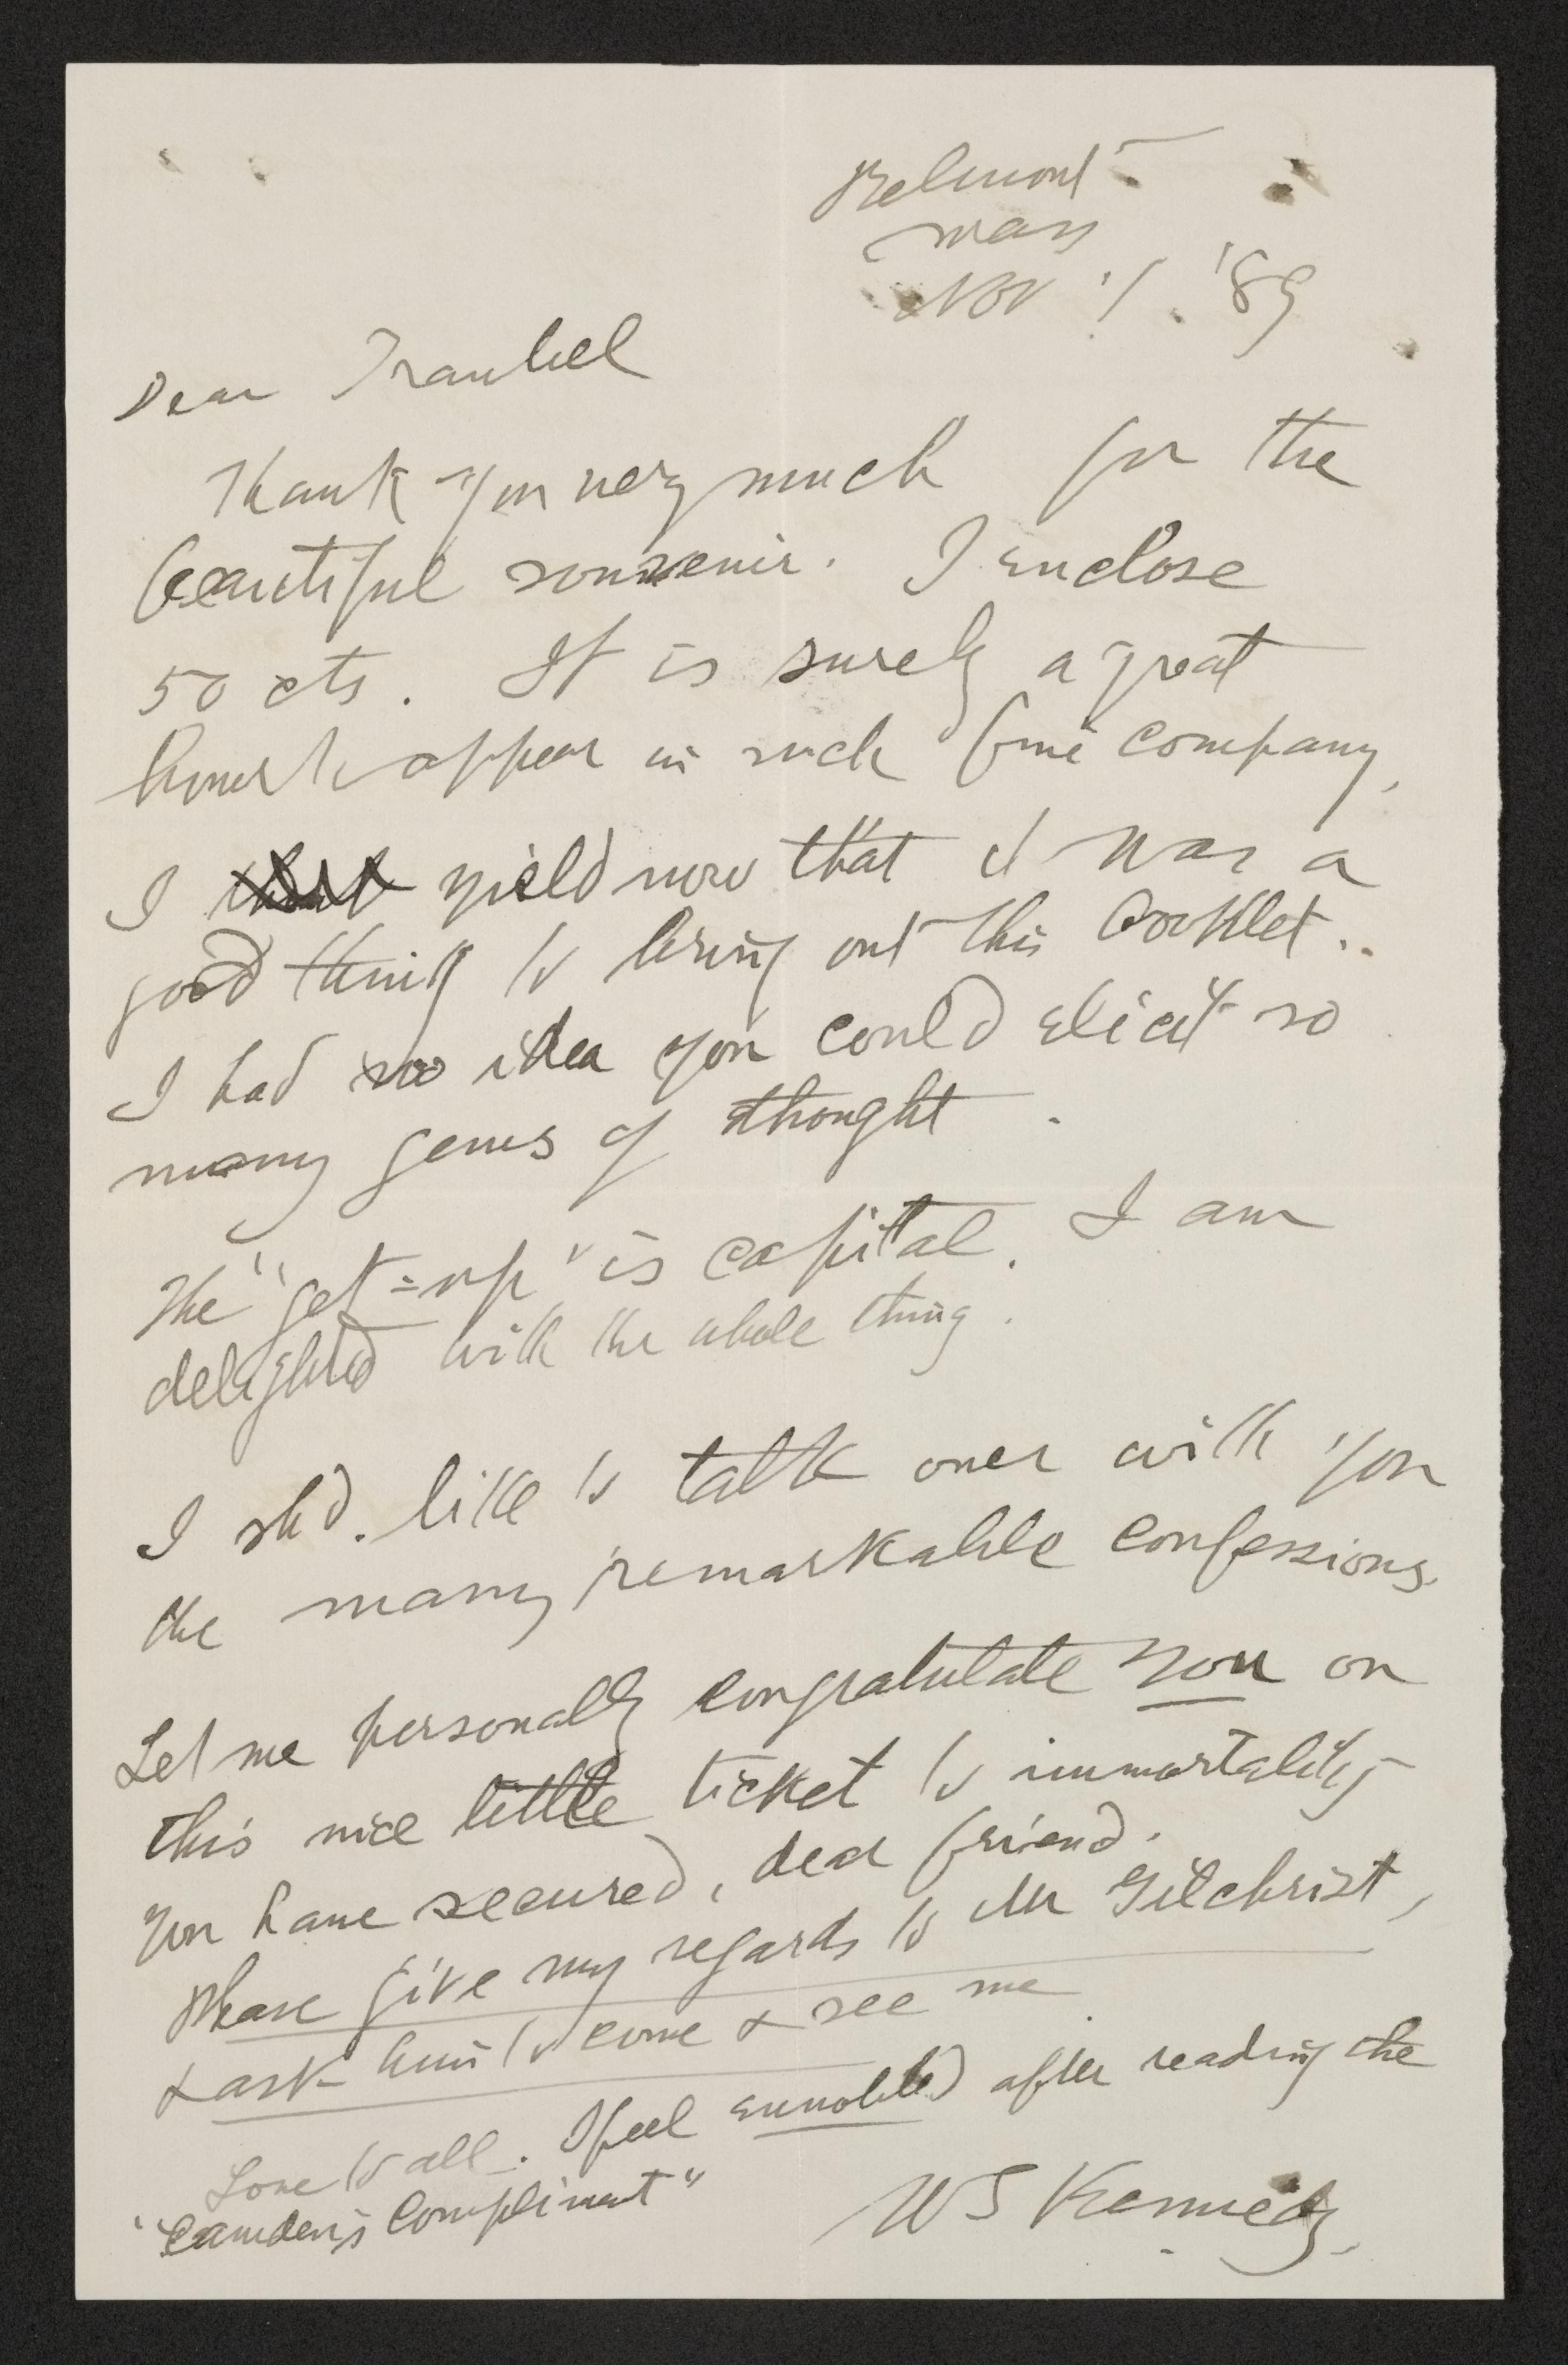 Belmont
Mass
Nov 1. '89
Dear Traubel
Thank you very much for the
beautiful souvenir. I enclose
50 cts. It is surely a great
honor to appear in such fine company,
I yield now that it was a
good thing to bring out this booklet..
I had no idea you could elicit so
many gems of thought.
The "get=up" is capital. I am
delighted with the whole thing.
I shd. like to talk over with you
the many remarkable confessions.
Let me personally congratulate you on
this nice little ticket to immortality
you have secured, dear friend.
Please give my regards to Mr Gilchrist,
& ask him to come & see me
Love to all. I feel ennobled after reading the
"Camden's Compliment"
WS Kennedy.